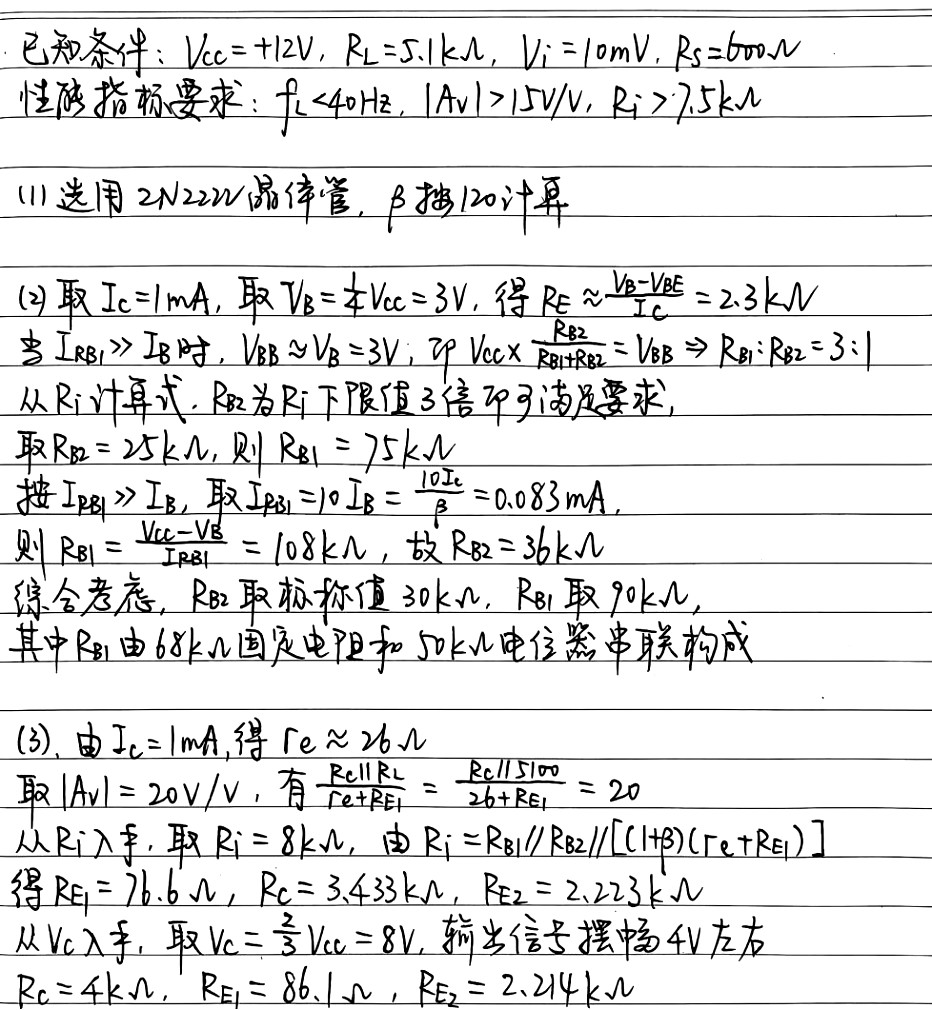 已知条件: Vcc=+12V, RL=5.1kΩ, Vi=10mV, Rs=600Ω
性能指标要求: fL<40Hz, |Av|>15V/V, Ri>7.5kΩ
(1) 选用 2N2222 晶体管, β按120计算
(2) 取 Ic=1mA, 取 VB=1/4Vcc=3V, 得 RE≈(VB-VBE)/Ic=2.3kΩ
当 IRB1>>IB时, VBB≈VB=3V, 即 Vcc×RB2/(RB1+RB2)=VBB⇒RB1:RB2=3:1
从Ri计算式, RB2为Ri下限值3倍即可满足要求,
取RB2=25kΩ, 则 RB1=75kΩ
按IRB1>>IB, 取IRB1=10IB=10Ic/β=0.083mA,
则 RB1=(Vcc-VB)/IRB1=108kΩ, 故RB2=36kΩ
综合考虑, RB2取标称值30kΩ, RB1取90kΩ,
其中RB1由68kΩ固定电阻和50kΩ电位器串联构成
(3), 由Ic=1mA,得 re≈26Ω
取|Av|=20V/V, 有 (Rc||RL)/(re+RE1)=(Rc||5100)/(26+RE1)=20
从Ri入手, 取Ri=8kΩ, 由Ri=RB1//RB2//[(1+β)(re+RE1)]
得RE1=76.6Ω, Rc=3.433kΩ, RE2=2.223kΩ
从Vc入手, 取Vc=2/3Vcc=8V, 输出信号摆幅4V左右
Rc=4kΩ, RE1=86.1Ω, RE2=2.214kΩ